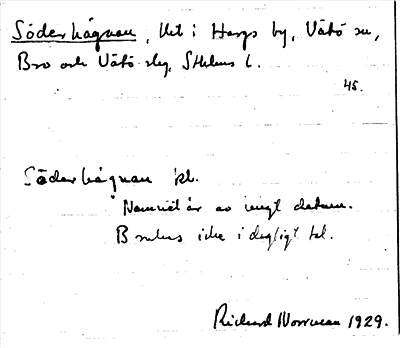 Söderhågnan, Utt i Harps by, Vätö sn,
Bro och Vätö slg, Sthlms l.
45.
Söderhågnan kl.
"Namnet är av ungt datum.
Brukas icke i dagligt tal.
Richard Norrman 1929.